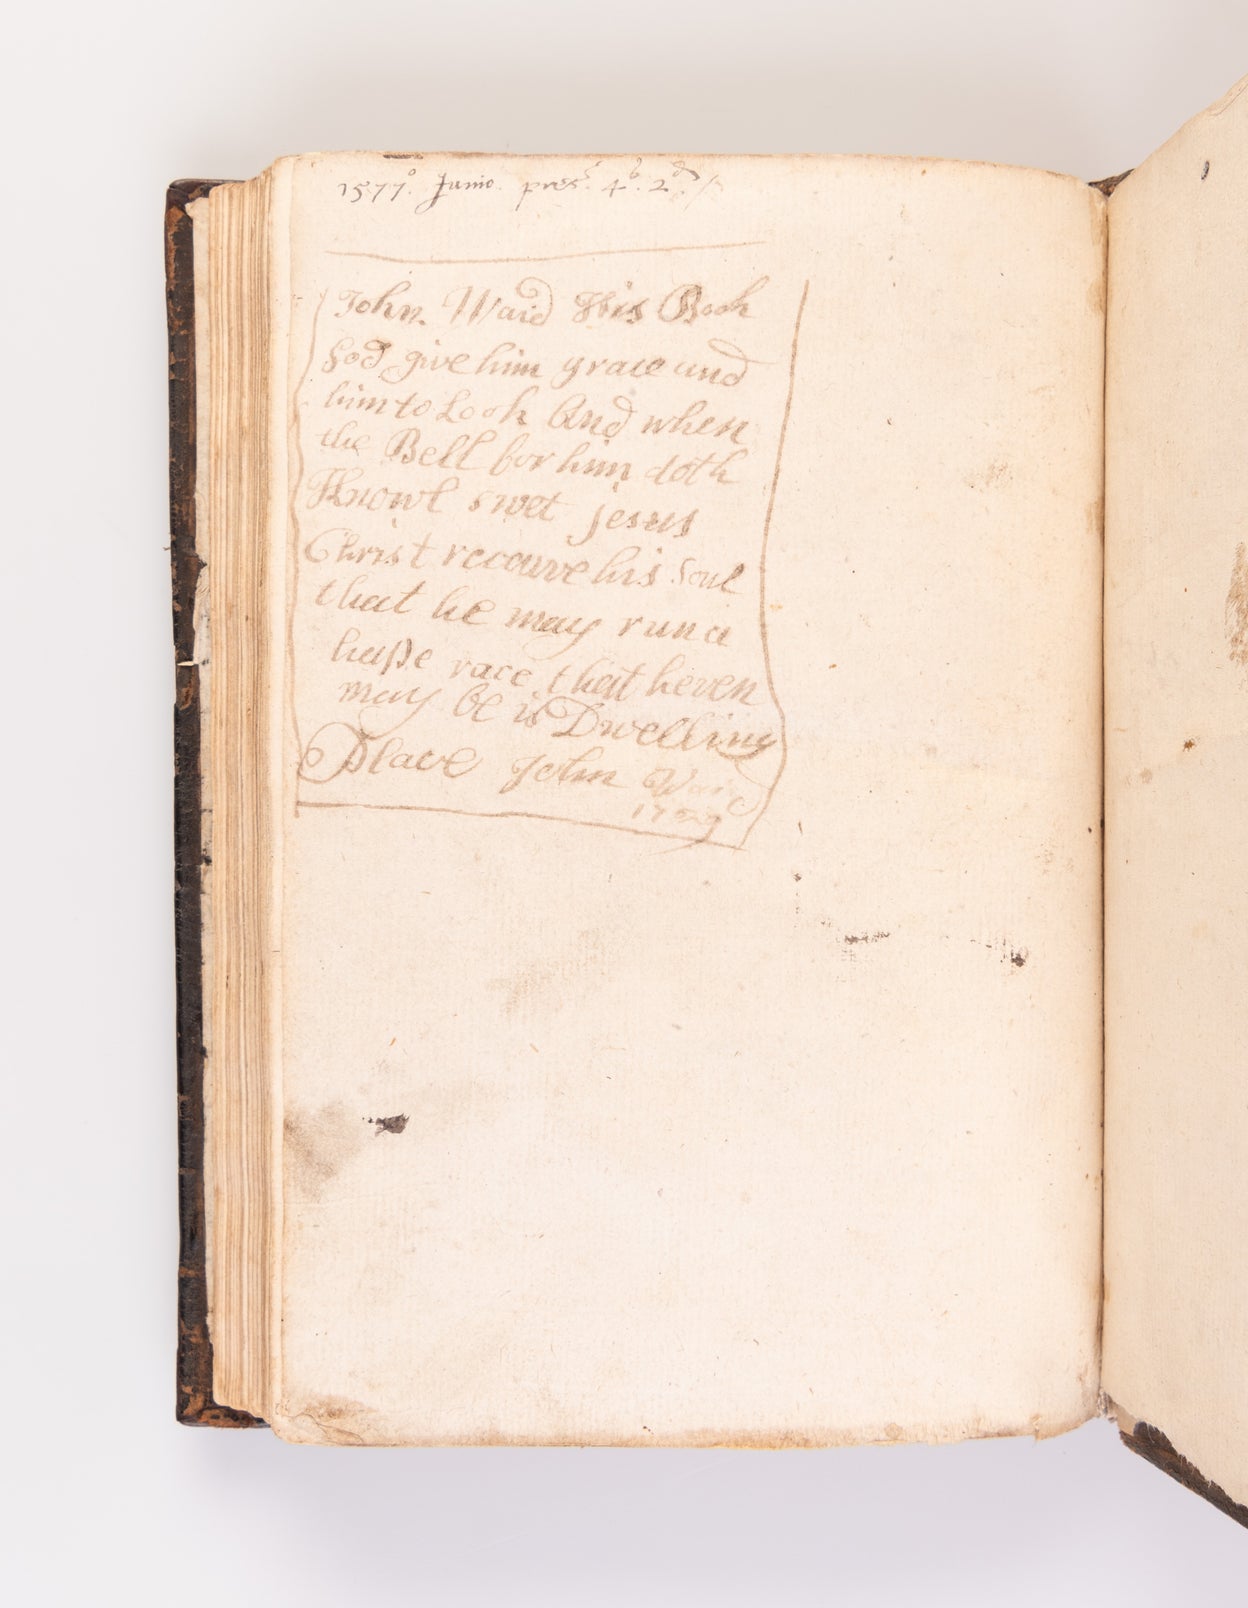 1577° Junio. pres^s. 4^s. 2^d.
John Ward His Book
God give him grace and
him to Look And when
the Bell for him doth
Knowl swet jesus
Christ receive his soul
that he may run a
hapſe race that heven
may be is Dwelling
Place John Ward
1729